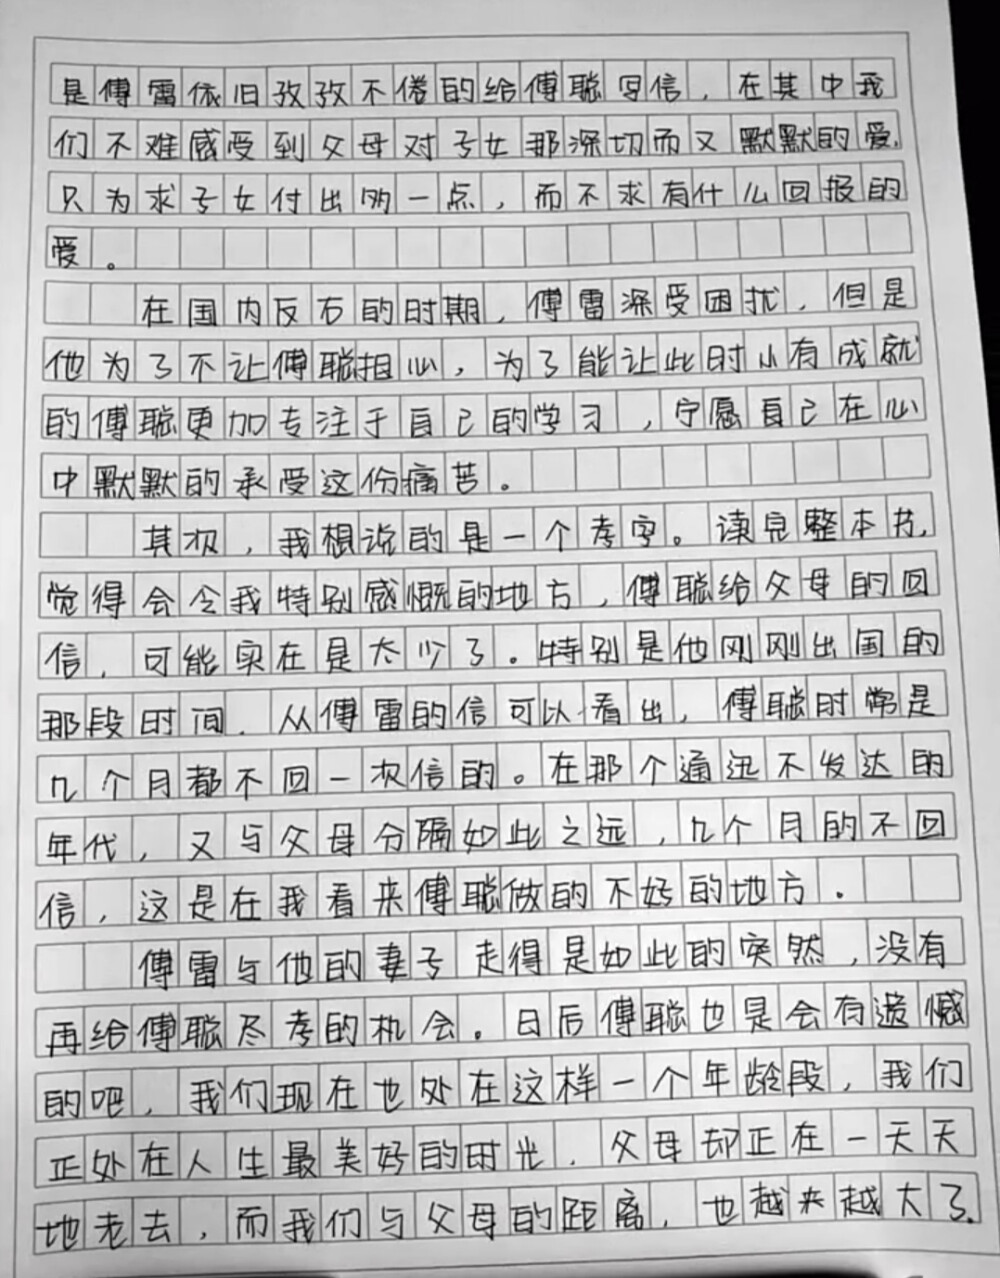 是傅雷依旧孜孜不倦的给傅聪写信，在其中我
们不难感受到父母对子女那深切而又默默的爱，
只为求子女付出哟一点，而不求有什么回报的
爱。
在国内反右的时期，傅雷深受困扰，但是
他为了不让傅聪担心，为了能让此时小有成就
的傅聪更加专注于自己的学习，宁愿自己在心
中默默的承受这份痛苦。
其次，我想说的是一个孝字。读完整本书，
觉得会令我特别感慨的地方，傅聪给父母的回
信，可能实在是太少了。特别是他刚刚出国的
那段时间．从傅雷的信可以看出，傅聪时常是
几个月都不回一次信的。在那个通迅不发达的
年代，又与父母分隔如此之远，几个月的不回
信，这是在我看来傅聪做的不好的地方．
傅雷与他的妻子走得是如此的突然，没有
再给傅聪尽孝的机会。日后傅聪也是会有遗憾
的吧，我们现在也处在这样一个年龄段，我们
正处在人生最美好的时光．父母却正在一天天
地老去，而我们与父母的距离，也越来越大了．